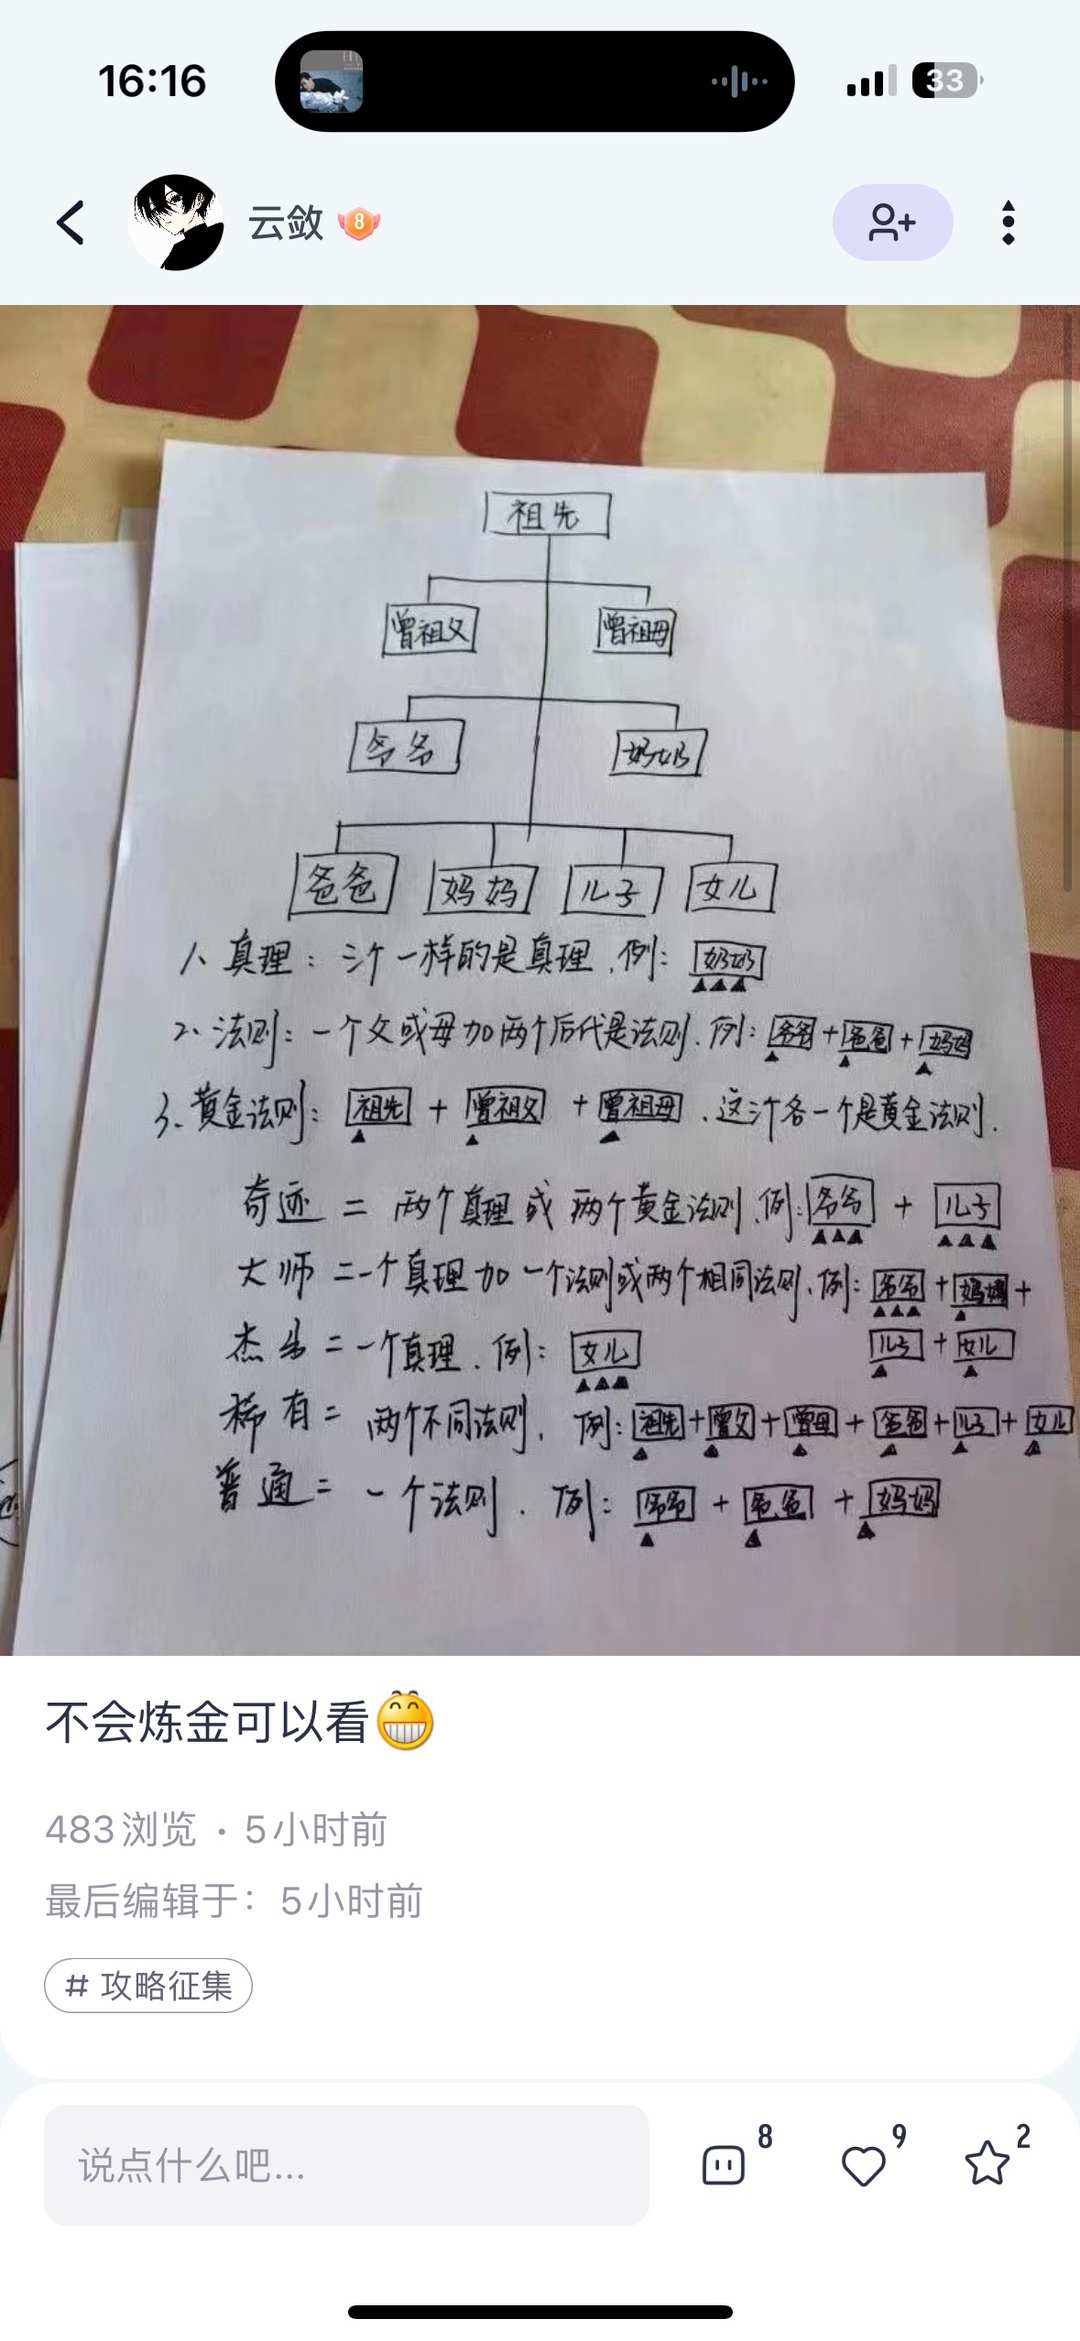 16:16
33
云敛
8
祖先
曾祖父 曾祖母
爷爷 奶奶
爸爸 妈妈 儿子 女儿
1、真理：三个一样的是真理.例：奶奶
2、法则：一个父或母加两个后代是法则.例：爷爷+爸爸+妈妈
3、黄金法则：祖先 + 曾祖父 + 曾祖母.这三个各一个是黄金法则.
奇迹 = 两个真理或两个黄金法则.例：爷爷 + 儿子
大师 =一个真理加一个法则或两个相同法则.例：爷爷+妈妈+
儿子+女儿
杰出 = 一个真理.例：女儿
稀有= 两个不同法则.例：祖先+曾父+曾母+爸爸+儿子+女儿
普通= 一个法则.例：爷爷 + 爸爸 + 妈妈
不会炼金可以看
483浏览 · 5小时前
最后编辑于：5小时前
# 攻略征集
说点什么吧...
8
9
2